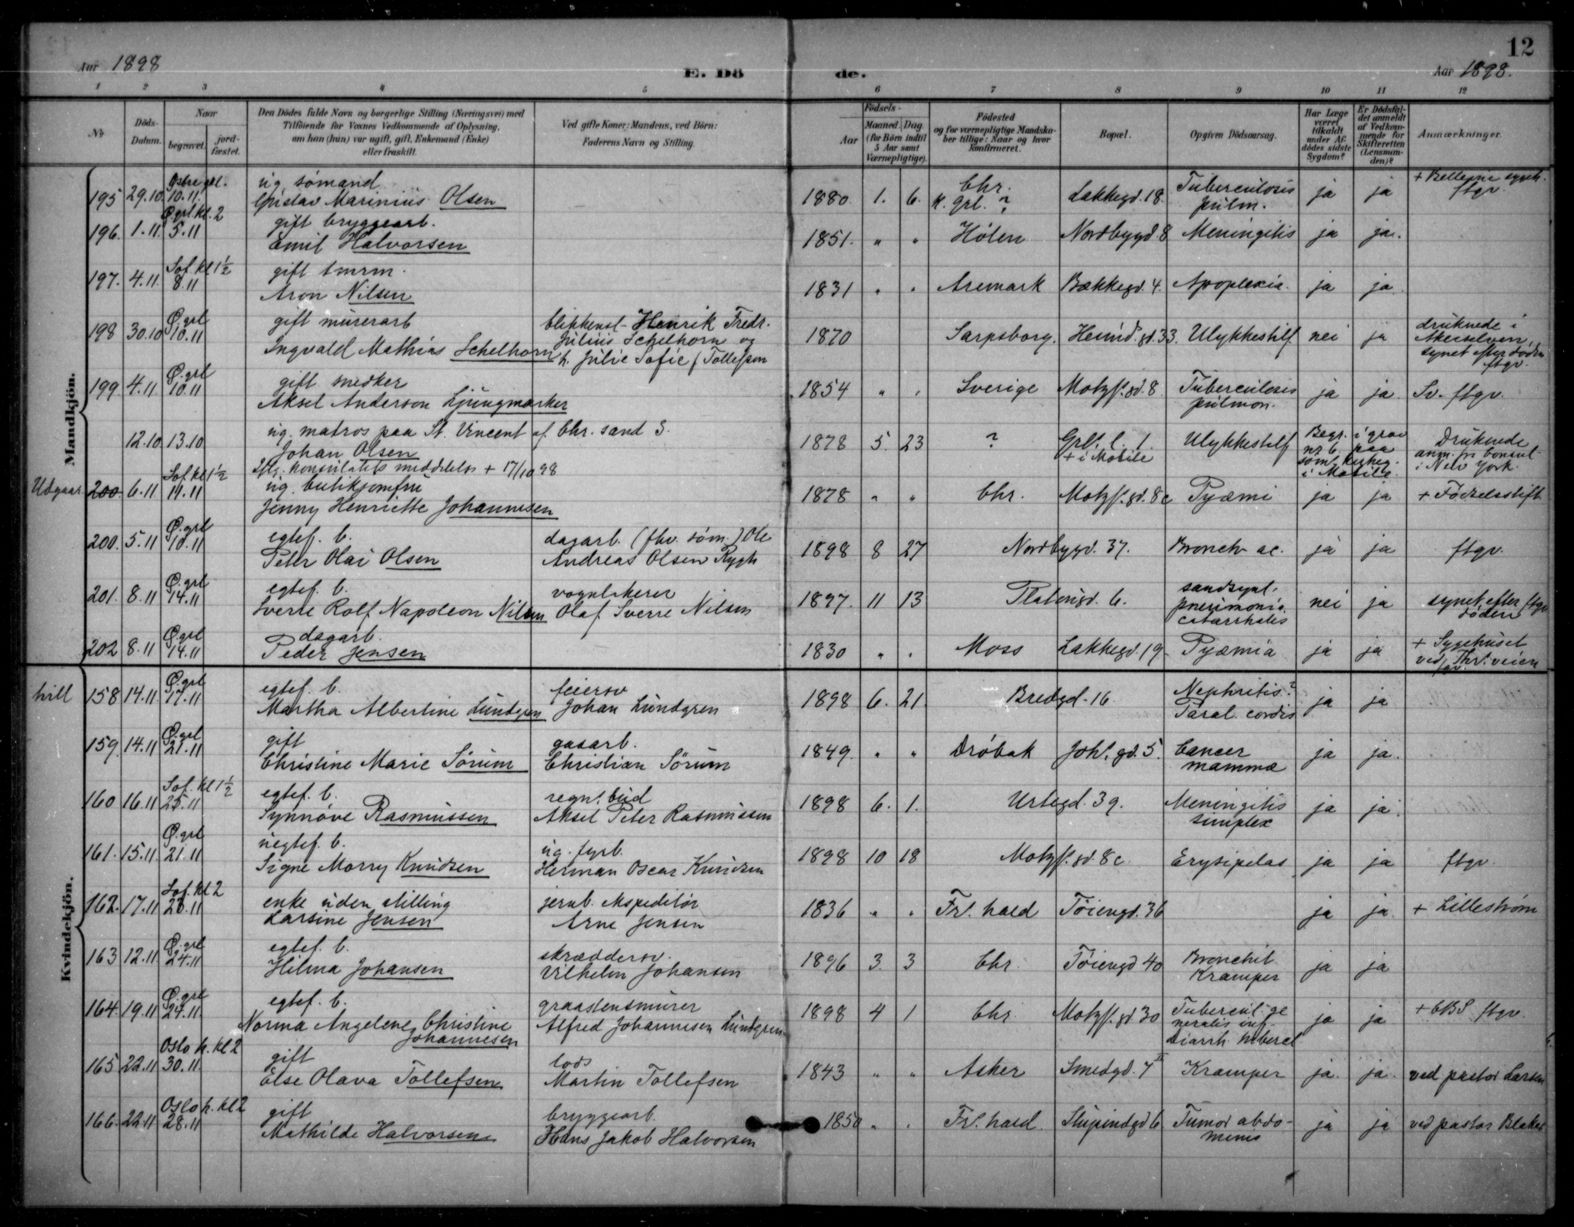 12
Aar 1898
E. Dö de.
Aar 1898.
1 2 3 4 5 6 7 8 9 10 11 12
No Döds-Datum. Naar begravet. jord-fæstet.
Den Dödes fulde Navn og borgerlige Stilling (Næringsvei) med Tilföiende for Voxnes Vedkommende af Oplysning, om han (hun) var ugift, gift, Enkemand (Enke) eller fraskilt.
Ved gifte Koner: Mandens, ved Börn: Faderens Navn og Stilling.
Födsels- Aar Maaned. Dag. (for Börn indtil 5 Aar samt Værnepligtige).
Födested og for værnepligtige Mandskaber tillige: Naar og hvor konfirmeret.
Bopæl.
Opgiven Dödsaarsag.
Har Læge været tilkaldt under Afdödes sidste Sygdom?
Er Dödsfaldet anmeldt af Vedkommende for Skifteretten (Lensmanden)?
Anmærkninger.
Mandkjön.
195 29.10 Østre grl. 10.11 ug. sømand Gustav Marinius Olsen 1880 1. 6. Chr. K. Grl. ? Lakkegd. 18. Tuberculosis pulm. ja ja ftgv.
196. 1.11 Ø.grl kl. 2 5.11 gift bryggearb. Emil Halvorsen 1851. " " Hölen Nordbygd 8 Meningitis ja ja.
197. 4.11 Sof. kl 1½ 8.11 gift tmrm. Aron Nilsen 1831 " " Aremark Bækkegd. 4. Apoplexia ja ja
198 30.10 Ø.grl 10.11 gift murerarb Ingvald Mathias Schelhorn blikkensl. Henrik Fredr. Julius Schelhorn og h. Julie Sofie f. Tollefsen 1870 Sarpsborg. gd. 33. Ulykkestilf nei ja druknede i Akerselven, synet efter döden ftgv.
199 4.11 Ø.grl 10.11 gift snedker Aksel Anderson Ljungmarker 1854 " " Sverige Motzf. gd. 8. Tuberculosis pulmon. ja ja Sv. ftgv.
12.10 13.10 ug. matros paa St. Vincent af Chr. sand S. Johan Olsen Iflg. konsulatets meddelse + 17/10 98 1878 5 23 ? Grl. l. 1. + i Mobile Ulykkestilf Begr. i grav nr 6 paa i Mobile. Druknede anm. fr. Consul. i New York.
Udgaar 200 6.11 Sof. kl 1½ 11.11 ug. butikjomfru Jenny Henriette Johannesen 1878 " " Chr. Motzf. gd. 8c Pyæmi ja ja + Födselsstift
200. 5.11 Ø.grl 10.11 egtef. b. Peter Olai Olsen dagarb. (fhv. søm.) Ole Andreas Olsen Rygh 1898 8 27 Nordbygd. 37. Bronch. ac. ja ja ftgv.
201. 8.11 Ø.grl 14.11 egtef. b. Sverre Rolf Napoleon Nilsen vogntkerer Olaf Sverre Nilsen 1897. 11 13 Platousgd. 6. sandsynl. pneumonia catarrhalis nei ja synet efter döden ftgv
202 8.11 Ø.grl 14.11 dagarb. Peder Jensen 1830 " " Moss Lakkegd. 19. Pyæmia ja ja + Sygehuset ved Thr. veien ftgv.
Kvindekjön.
hvill 158 14.11 Ø.grl 17.11 egtef. b. Martha Albertine Lundgren feiersv Johan Lundgren 1898 6. 21. Bredgd. 16 Nephritis? Paral. cordis ja ja
159. 14.11 Ø.grl 21.11 gift Christine Marie Sörum gasarb. Christian Sörum 1849. " " Dröbak Joh. gd. 5. Cancer mammæ ja ja.
160 16.11 Sof. kl 1½ 25.11 egtef. b. Synnöve Rasmussen regnt. bud Aksel Peter Rasmussen 1898 6. 1. Urtegd. 39. Meningitis simplex ja ja.
161. 15.11 Ø.grl 21.11 uegtef. b. Signe Morry Knudsen ug. fyrb. Herman Oscar Knudsen 1898 10 18 Motzf. gd. 8c. Erysipelas ja ja ftgv.
162. 17.11 Sof. kl 2 23.11 enke uden stilling Larsine Jensen jernb. ekspeditör Arne Jensen 1836 " " Fr. hald Töiengd. 36 ja ja + Lilleström
163 12.11 Ø.grl 24.11 egtef. b. Hilma Johansen skræddersv. Vilhelm Johansen 1896 3. 3 Chr. Töiengd 40 Bronchit Kramper ja ja
164. 19.11 Ø.grl 24.11 egtef. b. Norma Angelene Christine Johannesen graastensmurer Alfred Johannesen Lundgren 1898 4 1 Chr. Motzf. gd 30 Tubercul. generalis inf. Diarrh. tubercl ja ja + CBS. ftgv.
165 22.11 Oslo k. kl 2 30.11. gift Else Olava Tollefsen lods Martin Tollefsen 1843 " " Asker Smedgd. 7 II Kramper ja ja ved pastor Larsen
166. 22.11 Oslo k. kl 2 28.11 gift Mathilde Halvorsen bryggearb. Hans Jakob Halvorsen 1850 " . Fr. hald. Slupindgd 6 Tumor abdominis ja ja ved pastor Blakar